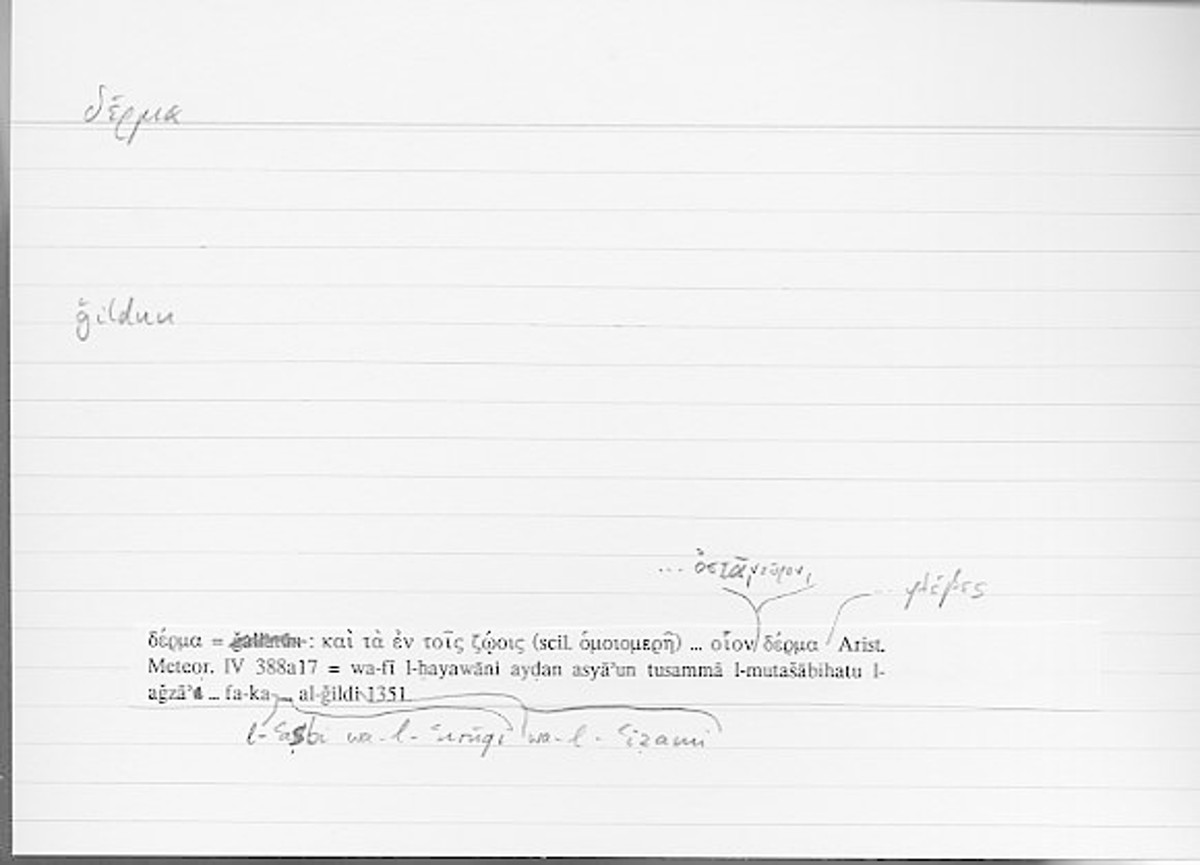 δέρμα
ǧildun
... ὀστᾶ, νεῦρον, ... φλέβες
δέρμα = : καὶ τὰ ἐν τοῖς ζῴοις (scil. ὁμοιομερῆ) ... οἷον δέρμα Arist.
Meteor. IV 388a17 = wa-fī l-ḥayawāni ayḍan asyāʾun tusammā l-mutašābihatu l-
aǧzāʾi ... fa-ka- ... al-ǧildi 1351
l-ʿaṣbi wa-l-ʿurūqi wa-l-ʿiẓami